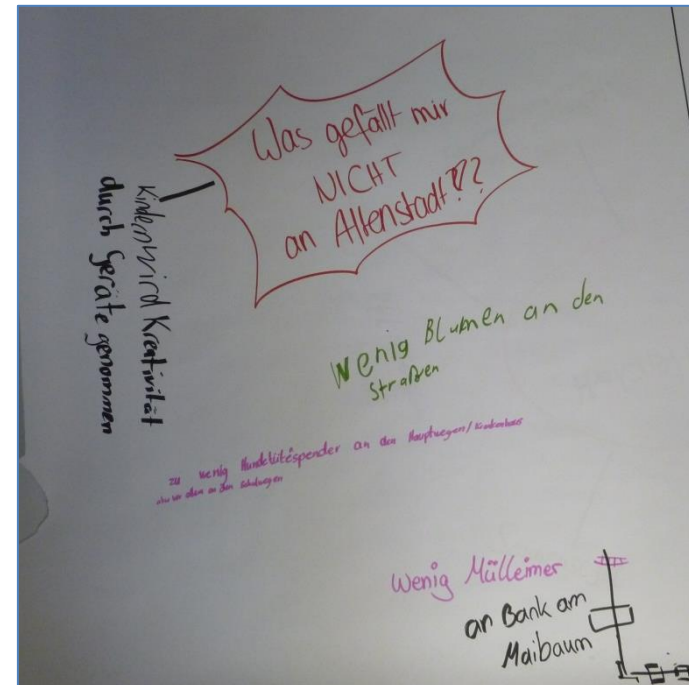 Was gefällt mir
NICHT
an Altenstadt???
Kindern wird Kreativität
durch Geräte genommen
Wenig Blumen an den
Straßen
zu wenig Hundetütespender an den Hauptwegen/
vor allem an den Schulwegen
Wenig Mülleimer
an Bank am
Maibaum